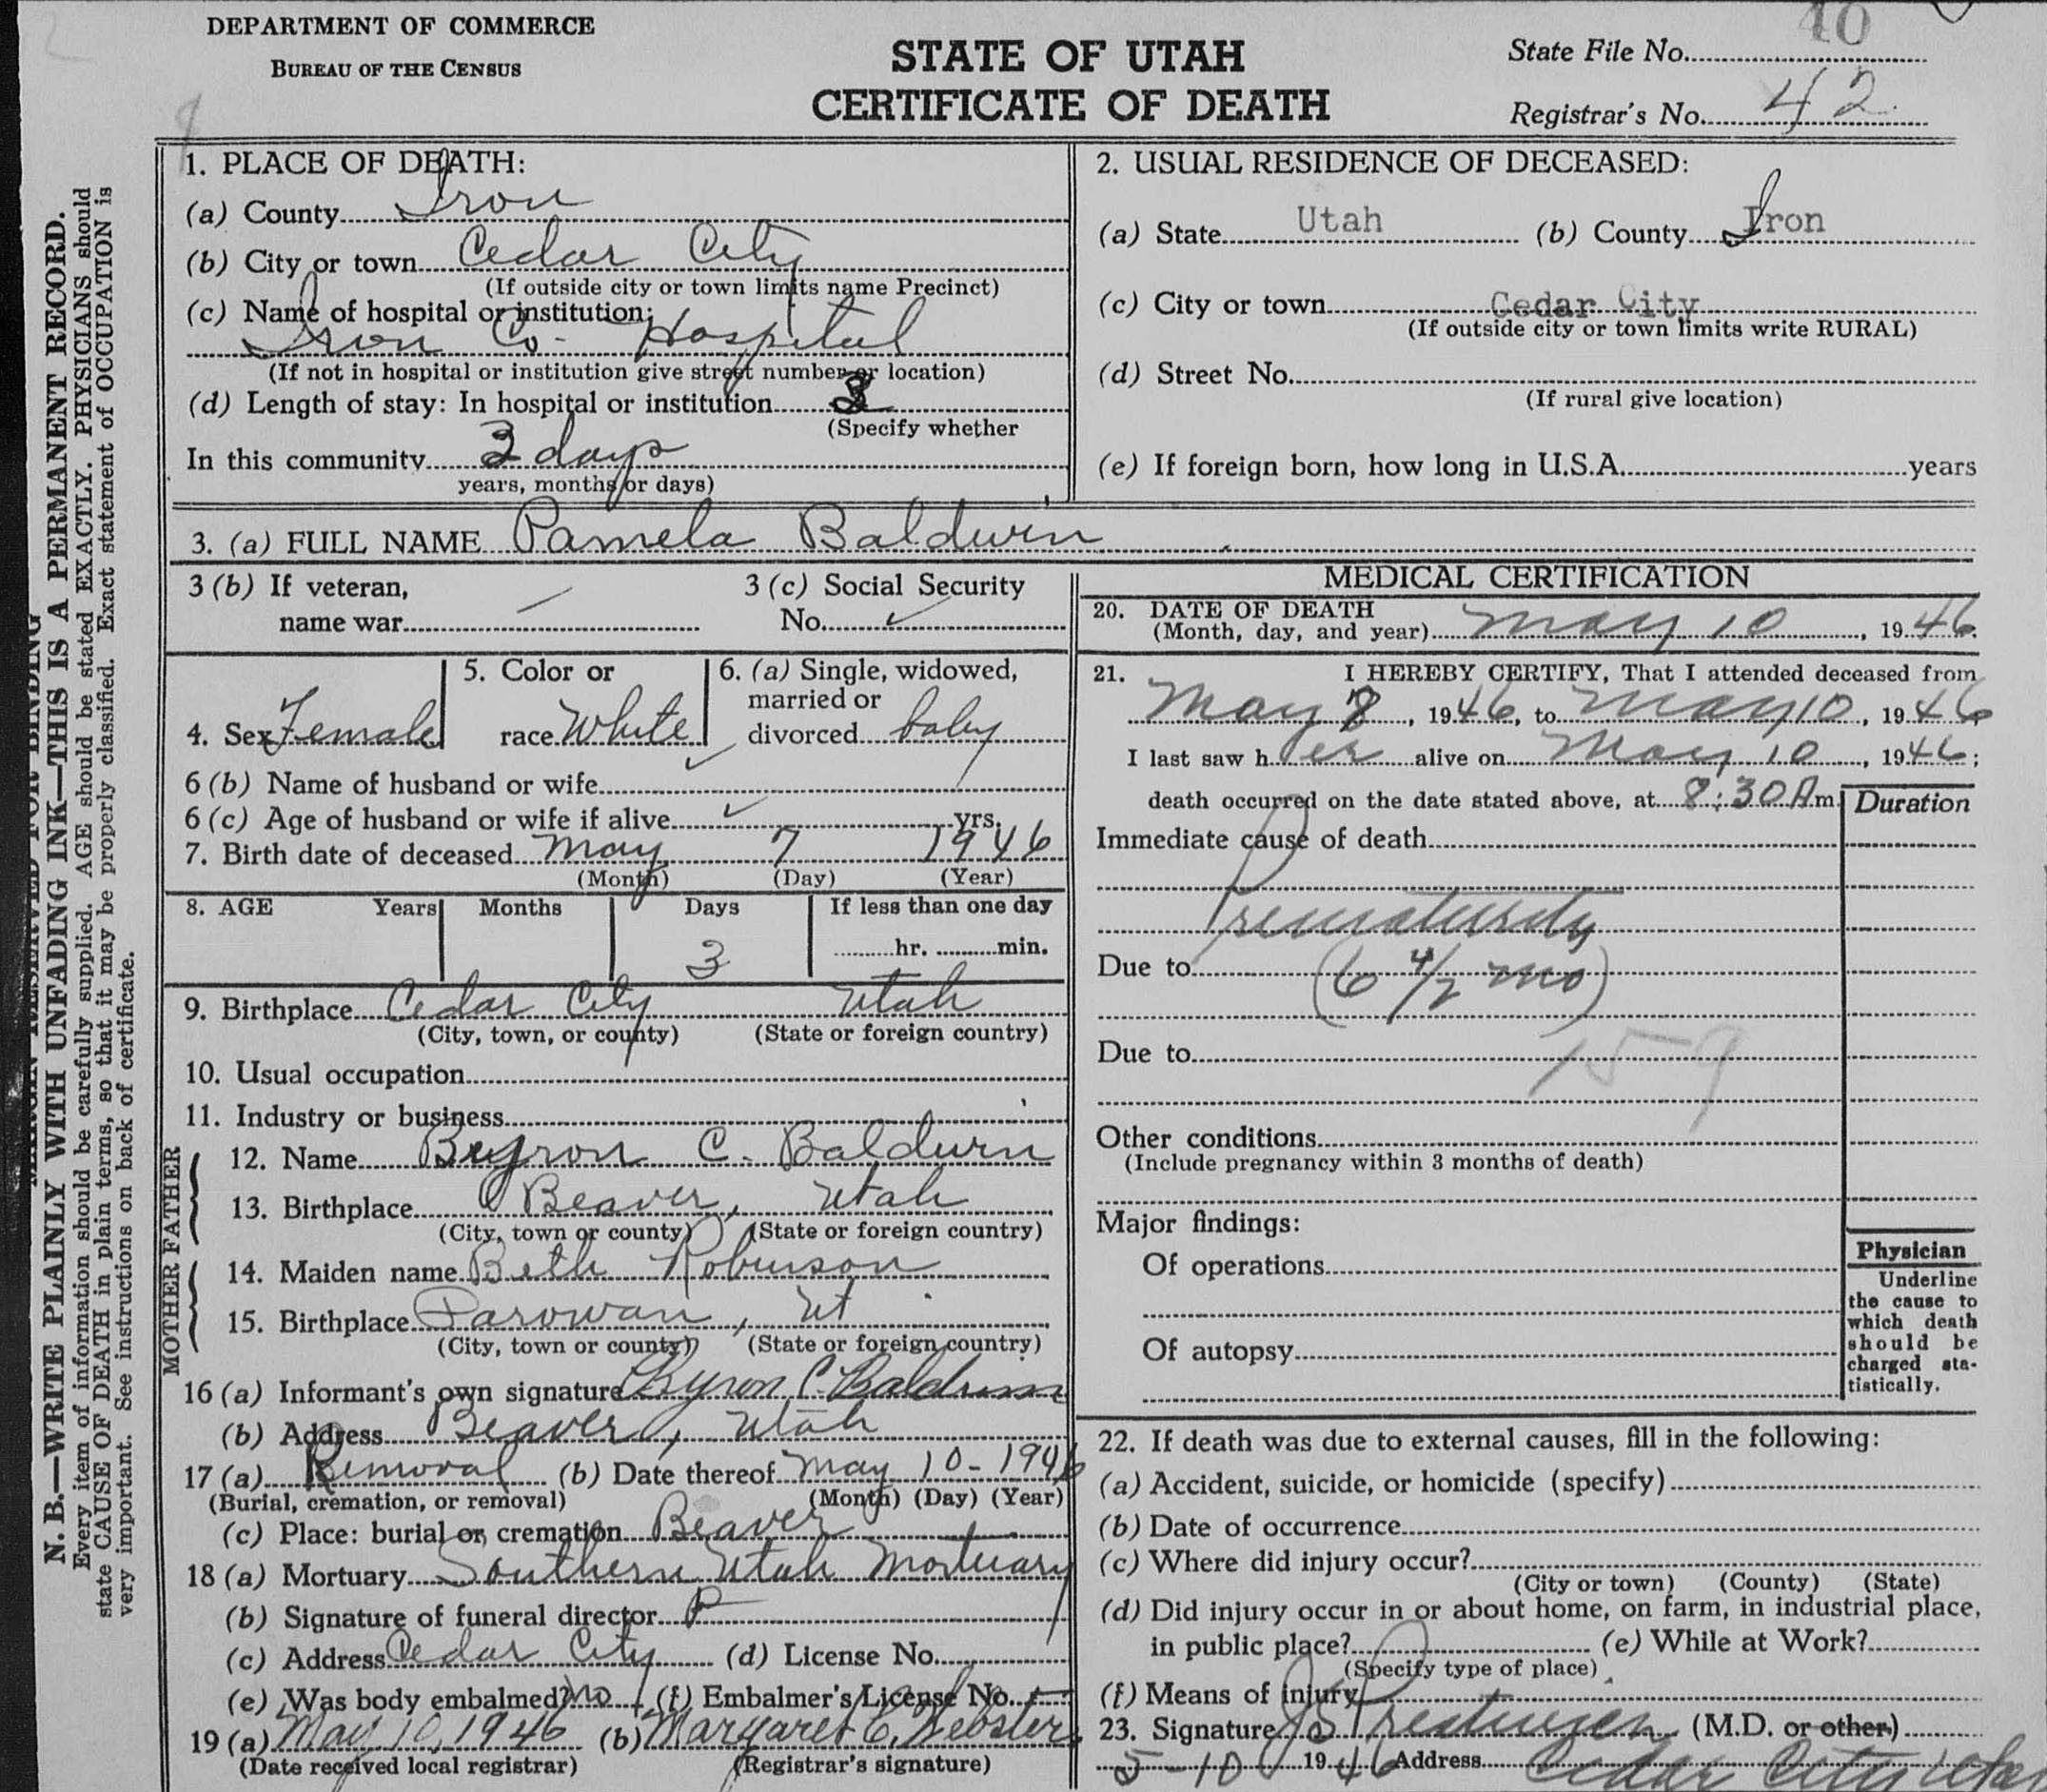 DEPARTMENT OF COMMERCE
BUREAU OF THE CENSUS
STATE OF UTAH
CERTIFICATE OF DEATH
State File No. 10
Registrar's No. 42
N. B.—WRITE PLAINLY WITH UNFADING INK—THIS IS A PERMANENT RECORD.
Every item of information should be carefully supplied. AGE should be stated EXACTLY. PHYSICIANS should
state CAUSE OF DEATH in plain terms, so that it may be properly classified. Exact statement of OCCUPATION is
very important. See instructions on back of certificate.
1. PLACE OF DEATH:
(a) County Iron
(b) City or town Cedar City
(If outside city or town limits name Precinct)
(c) Name of hospital or institution:
Iron Co. Hospital
(If not in hospital or institution give street number or location)
(d) Length of stay: In hospital or institution 3
(Specify whether
In this community 3 days
years, months or days)
2. USUAL RESIDENCE OF DECEASED:
(a) State Utah (b) County Iron
(c) City or town Cedar City
(If outside city or town limits write RURAL)
(d) Street No.
(If rural give location)
(e) If foreign born, how long in U.S.A. years
3. (a) FULL NAME Pamela Baldwin
3 (b) If veteran,
name war
3 (c) Social Security
No.
4. Sex Female
5. Color or
race White
6. (a) Single, widowed,
married or
divorced baby
6 (b) Name of husband or wife
6 (c) Age of husband or wife if alive yrs.
7. Birth date of deceased May 7 1946
(Month) (Day) (Year)
8. AGE Years Months Days If less than one day
3 hr. min.
9. Birthplace Cedar City Utah
(City, town, or county) (State or foreign country)
10. Usual occupation
11. Industry or business
FATHER
12. Name Byron C. Baldwin
13. Birthplace Beaver, Utah
(City, town or county) (State or foreign country)
MOTHER
14. Maiden name Beth Robinson
15. Birthplace Parowan, Ut
(City, town or county) (State or foreign country)
16 (a) Informant's own signature Byron C. Baldwin
(b) Address Beaver, Utah
17 (a) Removal (b) Date thereof May 10-1946
(Burial, cremation, or removal) (Month) (Day) (Year)
(c) Place: burial or cremation Beaver
18 (a) Mortuary Southern Utah Mortuary
(b) Signature of funeral director
(c) Address Cedar City (d) License No.
(e) Was body embalmed? No (f) Embalmer's License No.
19 (a) May 10, 1946 (b) Margaret C. Webster
(Date received local registrar) (Registrar's signature)
MEDICAL CERTIFICATION
20. DATE OF DEATH
(Month, day, and year) May 10, 1946
21. I HEREBY CERTIFY, That I attended deceased from
May 8, 1946, to May 10, 1946
I last saw her alive on May 10, 1946;
death occurred on the date stated above, at 8:30 A m.
Duration
Immediate cause of death
Prematurity
Due to (6 1/2 mo)
Due to 159
Other conditions
(Include pregnancy within 3 months of death)
Major findings:
Of operations
Of autopsy
Physician
Underline
the cause to
which death
should be
charged sta-
tistically.
22. If death was due to external causes, fill in the following:
(a) Accident, suicide, or homicide (specify)
(b) Date of occurrence
(c) Where did injury occur?
(City or town) (County) (State)
(d) Did injury occur in or about home, on farm, in industrial place,
in public place? (e) While at Work?
(Specify type of place)
(f) Means of injury
23. Signature (M.D. or other)
5-10 1946 Address Cedar City Utah